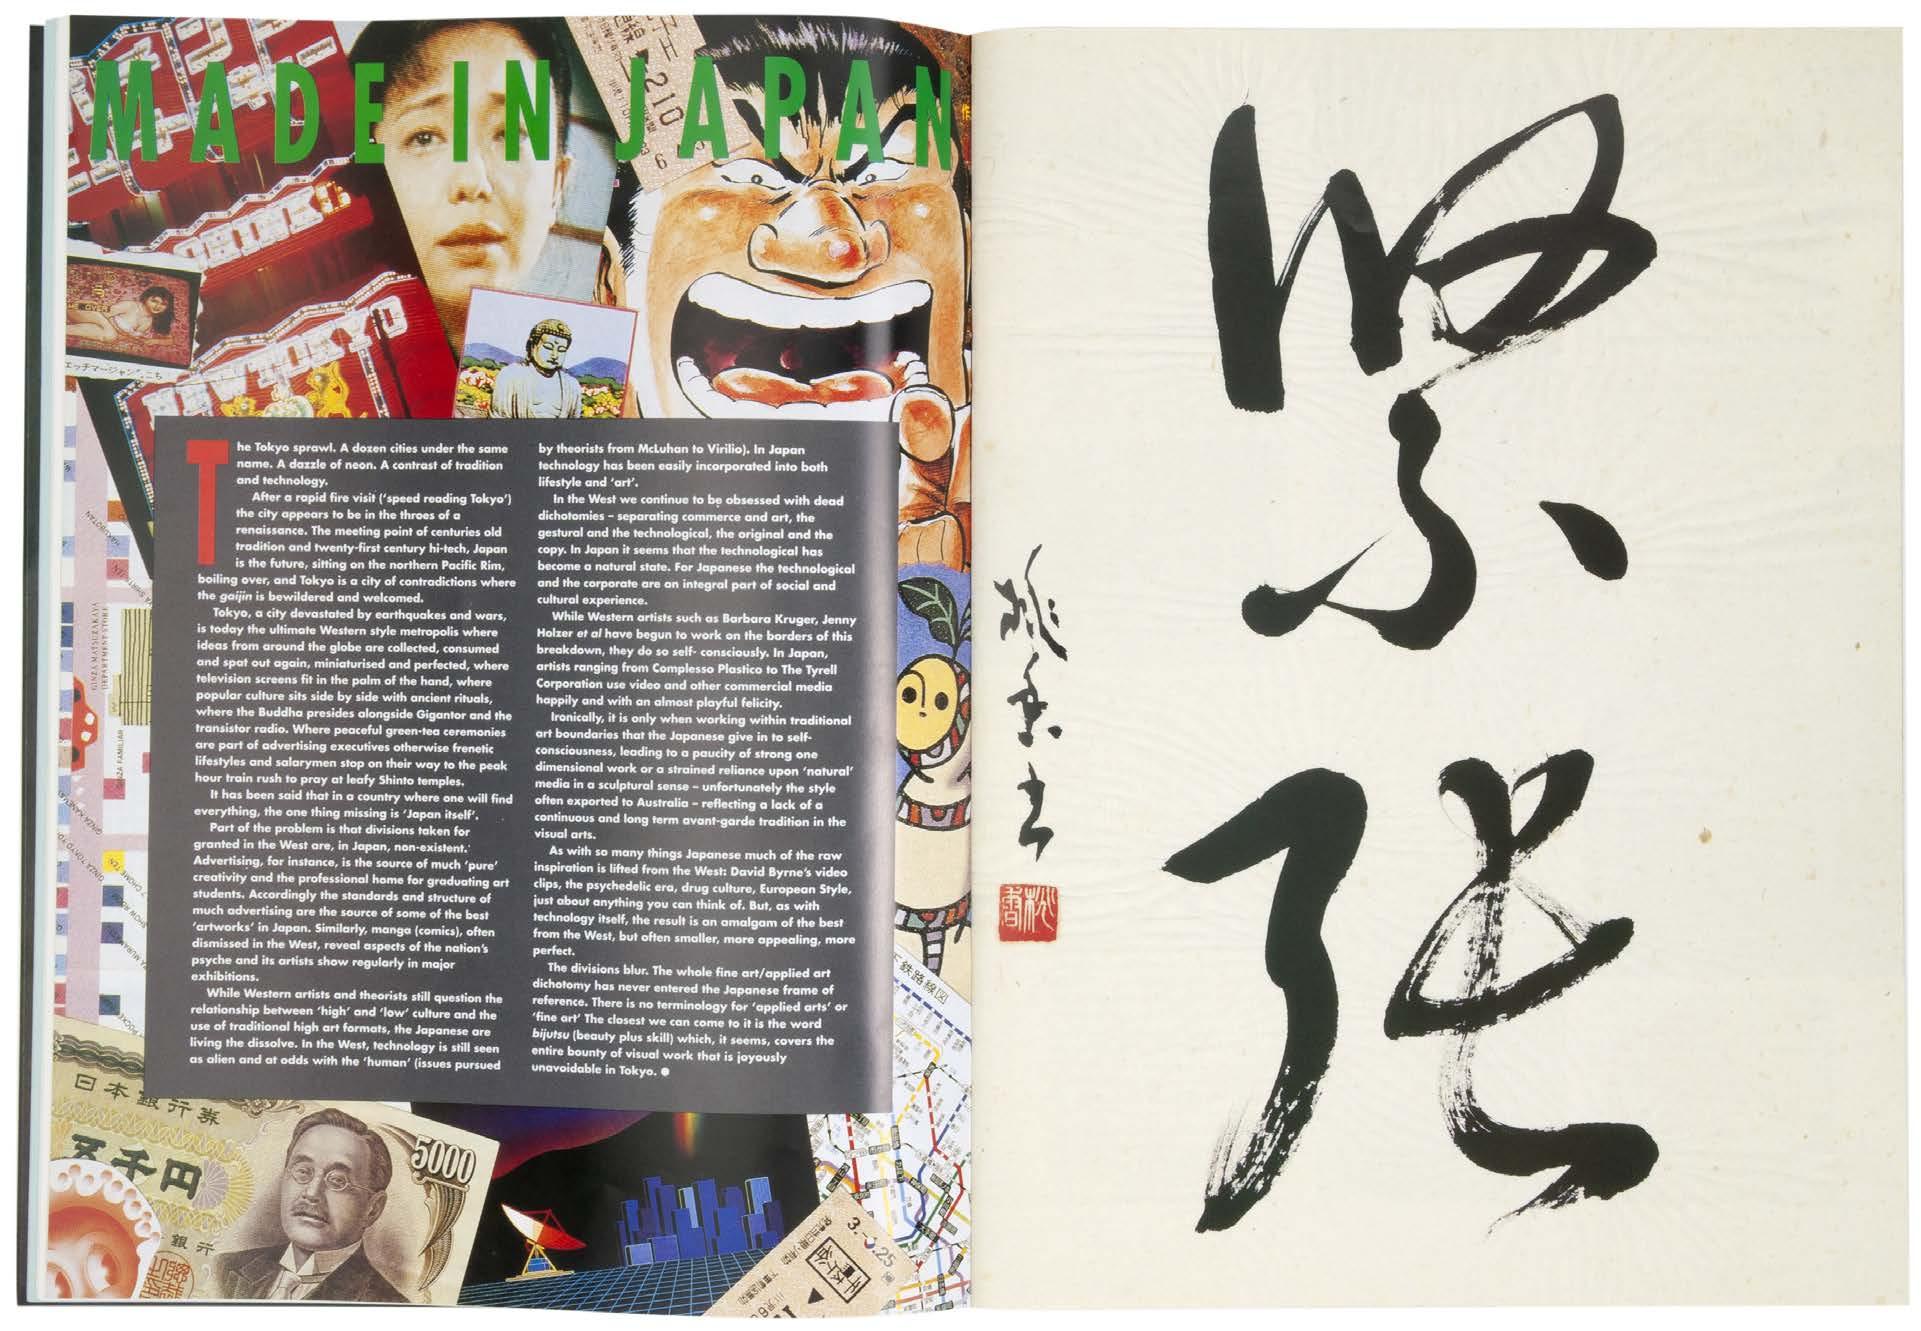 MADE IN JAPAN
210
6
THINK
NEW TOKYO
OVER
エッチマージャンこち
The Tokyo sprawl. A dozen cities under the same
name. A dazzle of neon. A contrast of tradition
and technology.
After a rapid fire visit (‘speed reading Tokyo’)
the city appears to be in the throes of a
renaissance. The meeting point of centuries old
tradition and twenty-first century hi-tech, Japan
is the future, sitting on the northern Pacific Rim,
boiling over, and Tokyo is a city of contradictions where
the gaijin is bewildered and welcomed.
Tokyo, a city devastated by earthquakes and wars,
is today the ultimate Western style metropolis where
ideas from around the globe are collected, consumed
and spat out again, miniaturised and perfected, where
television screens fit in the palm of the hand, where
popular culture sits side by side with ancient rituals,
where the Buddha presides alongside Gigantor and the
transistor radio. Where peaceful green-tea ceremonies
are part of advertising executives otherwise frenetic
lifestyles and salarymen stop on their way to the peak
hour train rush to pray at leafy Shinto temples.
It has been said that in a country where one will find
everything, the one thing missing is ‘Japan itself’.
Part of the problem is that divisions taken for
granted in the West are, in Japan, non-existent.
Advertising, for instance, is the source of much ‘pure’
creativity and the professional home for graduating art
students. Accordingly the standards and structure of
much advertising are the source of some of the best
‘artworks’ in Japan. Similarly, manga (comics), often
dismissed in the West, reveal aspects of the nation’s
psyche and its artists show regularly in major
exhibitions.
While Western artists and theorists still question the
relationship between ‘high’ and ‘low’ culture and the
use of traditional high art formats, the Japanese are
living the dissolve. In the West, technology is still seen
as alien and at odds with the ‘human’ (issues pursued
by theorists from McLuhan to Virilio). In Japan
technology has been easily incorporated into both
lifestyle and ‘art’.
In the West we continue to be obsessed with dead
dichotomies – separating commerce and art, the
gestural and the technological, the original and the
copy. In Japan it seems that the technological has
become a natural state. For Japanese the technological
and the corporate are an integral part of social and
cultural experience.
While Western artists such as Barbara Kruger, Jenny
Holzer et al have begun to work on the borders of this
breakdown, they do so self- consciously. In Japan,
artists ranging from Complesso Plastico to The Tyrell
Corporation use video and other commercial media
happily and with an almost playful felicity.
Ironically, it is only when working within traditional
art boundaries that the Japanese give in to self-
consciousness, leading to a paucity of strong one
dimensional work or a strained reliance upon ‘natural’
media in a sculptural sense – unfortunately the style
often exported to Australia – reflecting a lack of a
continuous and long term avant-garde tradition in the
visual arts.
As with so many things Japanese much of the raw
inspiration is lifted from the West: David Byrne’s video
clips, the psychedelic era, drug culture, European Style,
just about anything you can think of. But, as with
technology itself, the result is an amalgam of the best
from the West, but often smaller, more appealing, more
perfect.
The divisions blur. The whole fine art/applied art
dichotomy has never entered the Japanese frame of
reference. There is no terminology for ‘applied arts’ or
‘fine art’ The closest we can come to it is the word
bijutsu (beauty plus skill) which, it seems, covers the
entire bounty of visual work that is joyously
unavoidable in Tokyo. ●
GINZA MATSUZAKAYA
DEPARTMENT STORE
GINZA FAMILIAR
下鉄路線図
日本銀行券
5000
五千円
銀行
3.-3.25
緊張